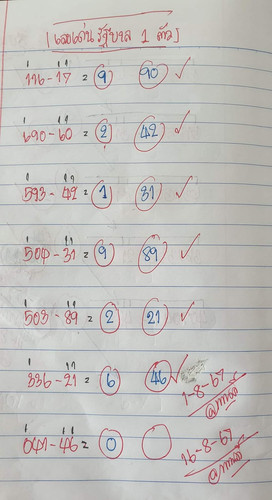 เลขเด่น รัฐบาล 1 ตัว
116-17 = 9 90 ✓
690-60 = 2 42 ✓
593-42 = 1 31 ✓
504-31 = 9 89 ✓
503-89 = 2 21 ✓
336-21 = 6 46 ✓
1-8-67
041-46 = 0
16-8-67